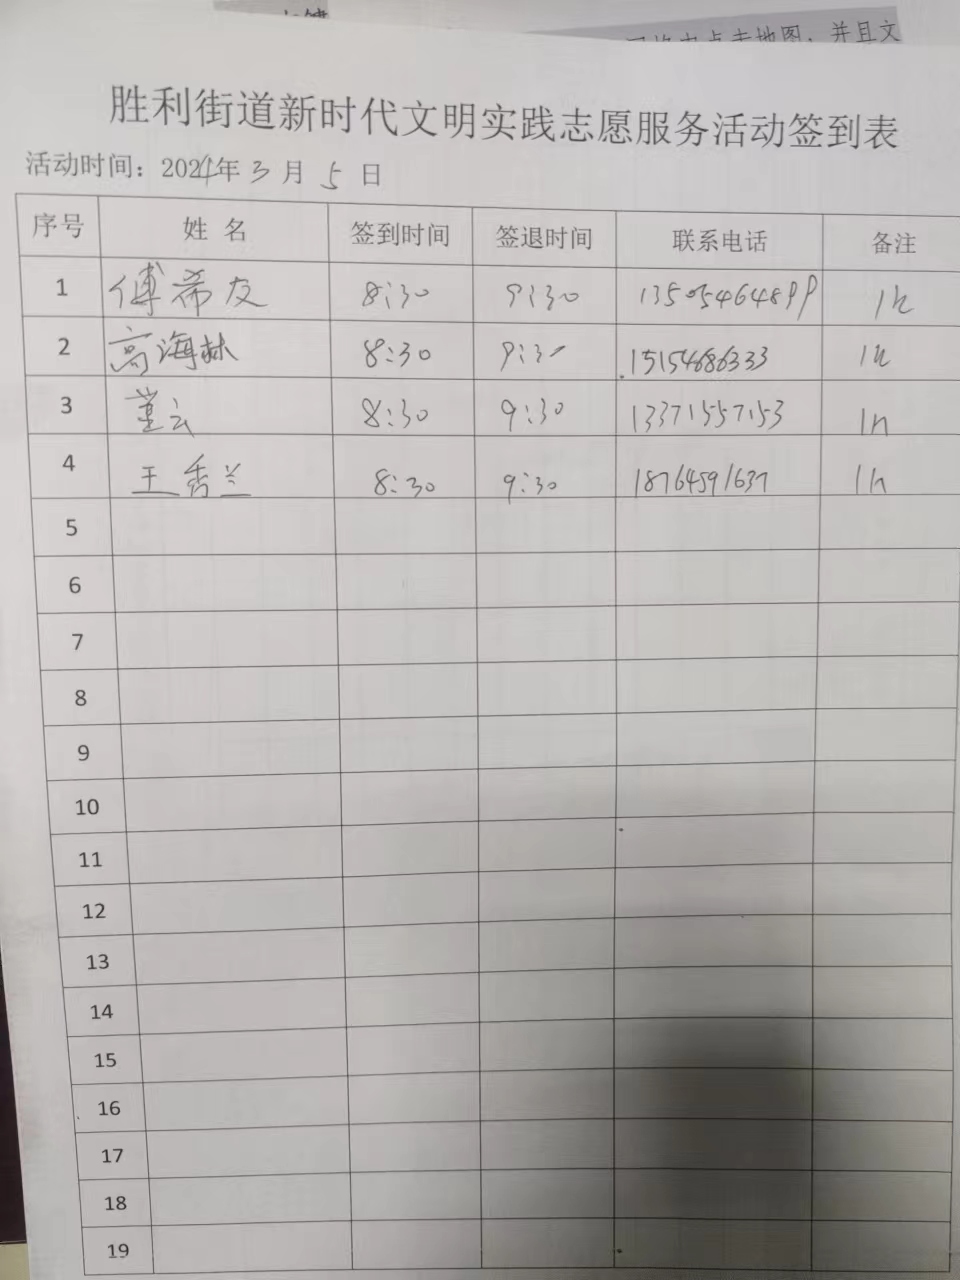 可将中点击地图，并且文
胜利街道新时代文明实践志愿服务活动签到表
活动时间：2024年3月5日
序号 姓名 签到时间 签退时间 联系电话 备注
1 傅希友 8:30 9:30 13505464899 1h
2 高海林 8:30 9:30 15154686333 1h
3 董云 8:30 9:30 13371557153 1h
4 王秀兰 8:30 9:30 18764591637 1h
5
6
7
8
9
10
11
12
13
14
15
16
17
18
19